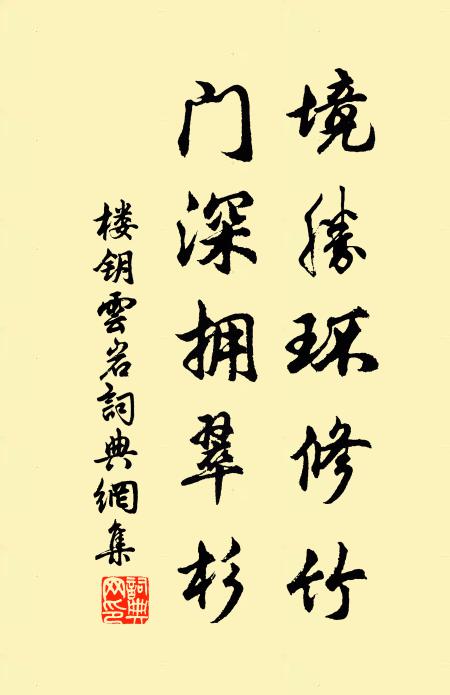 境勝环修竹
门深拥翠杉
楼钥雲岩詞典網集
詞典網印